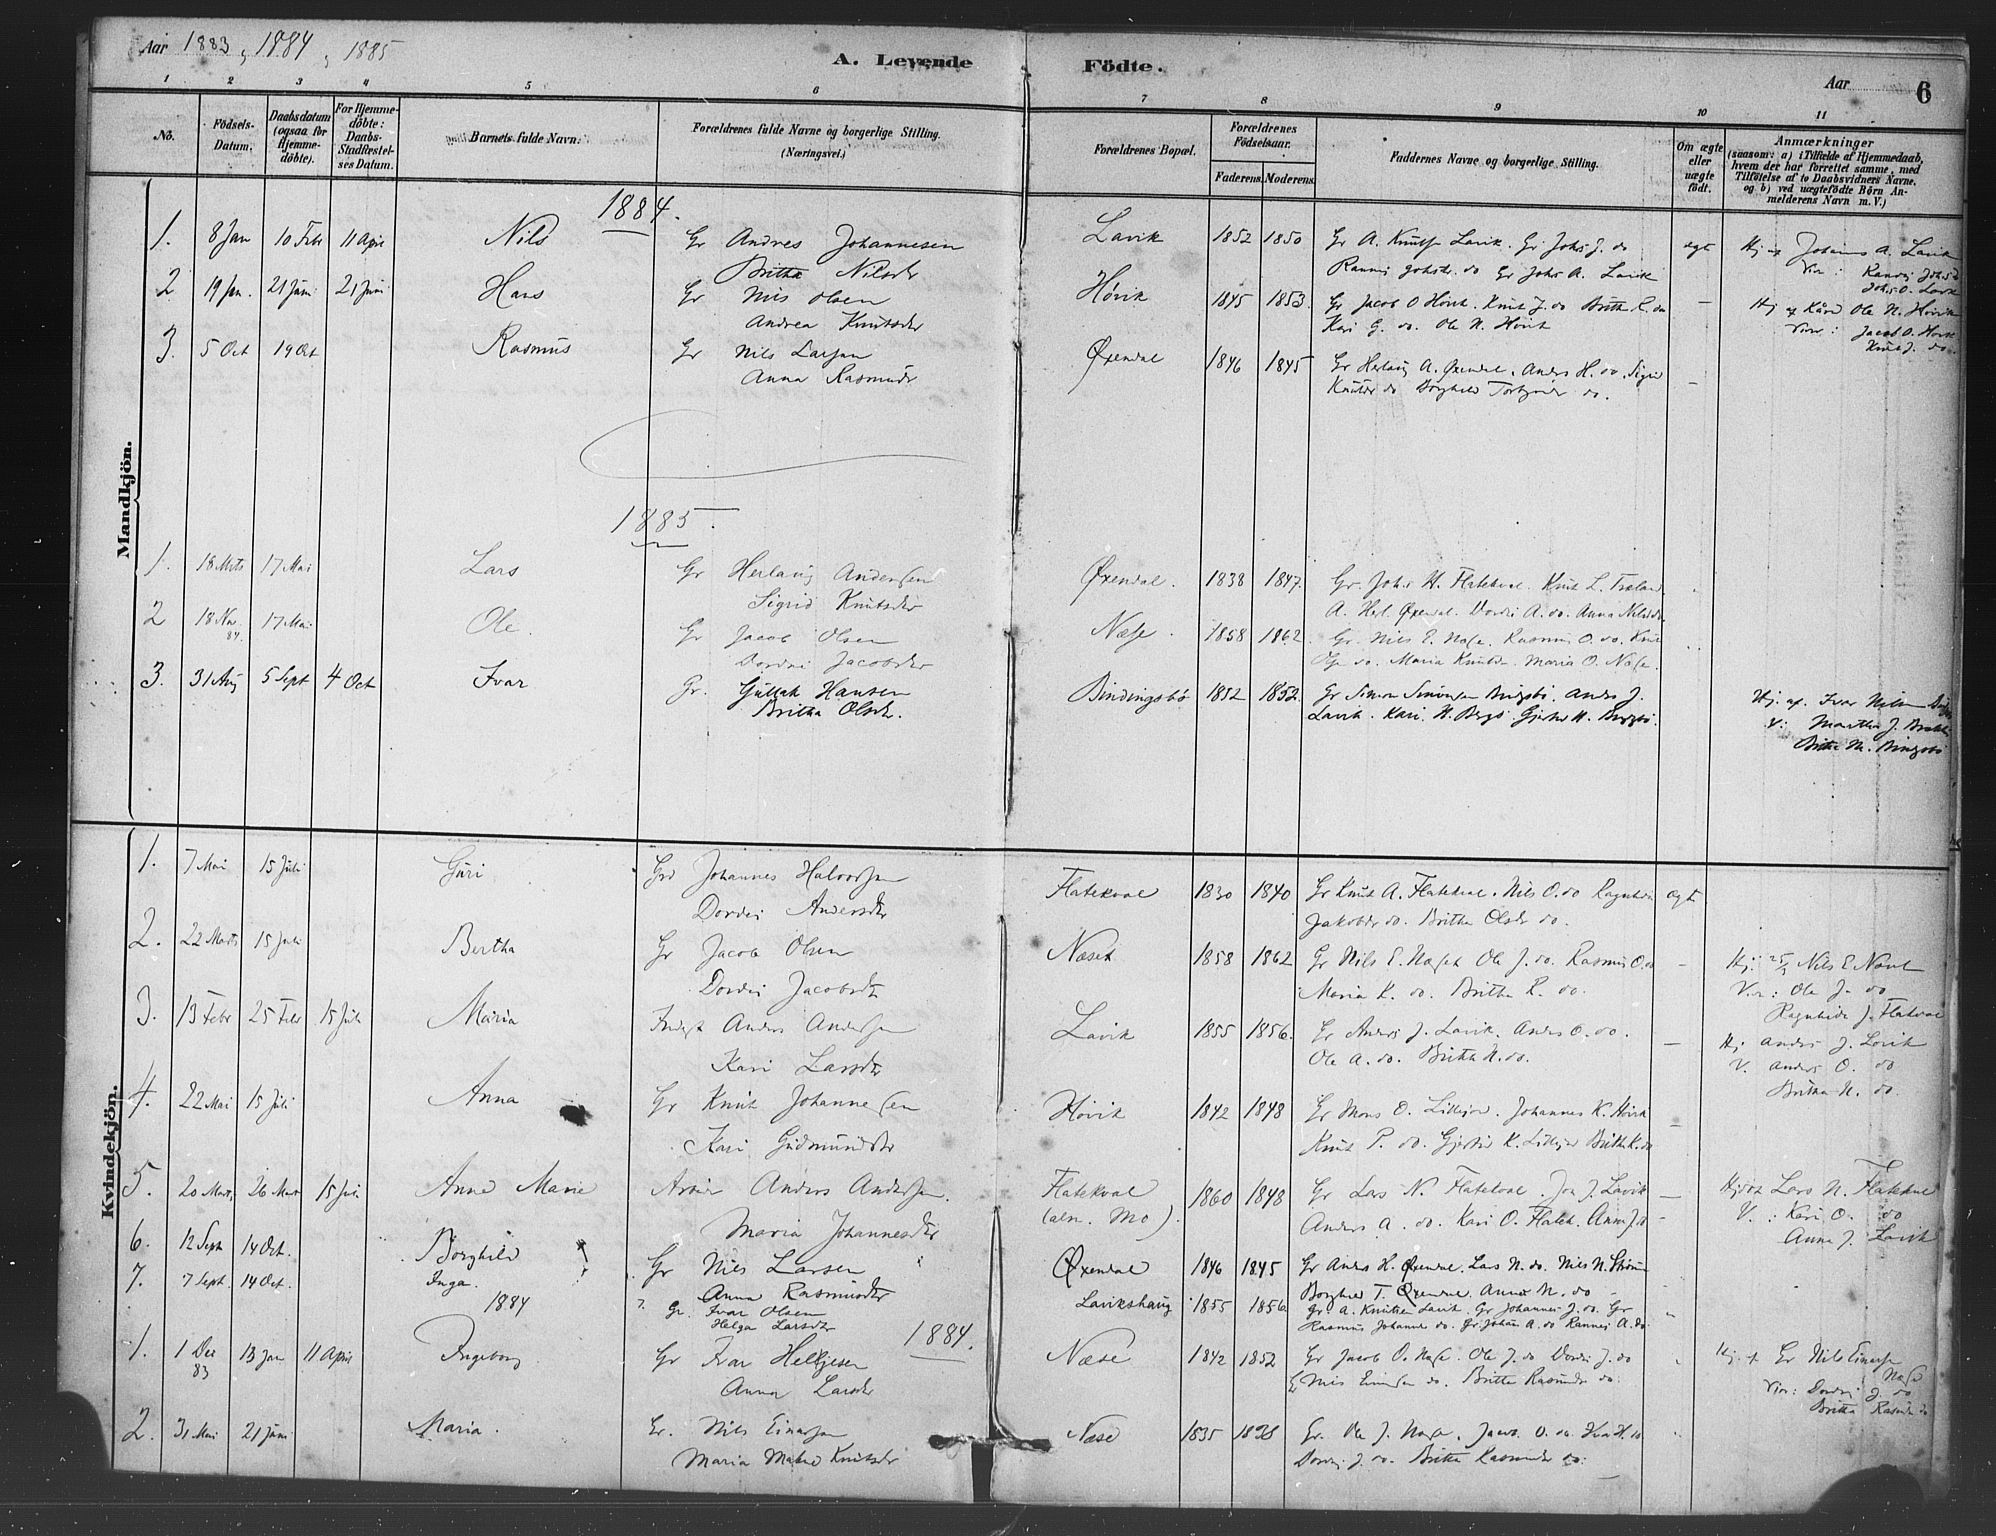 Aar 1883, 1884, 1885
A. Levende Födte.
Aar 6
1 2 3 4 5 6 7 8 9 10 11
No.
Födsels-Datum.
Daabsdatum (ogsaa for Hjemme-döbte).
For Hjemme-döbte: Daabs-Stadfæstel-ses Datum.
Barnets fulde Navn.
Forældrenes fulde Navne og borgerlige Stilling.
(Næringsvei.)
Forældrenes Bopæl.
Forældrenes Födselsaar.
Faderens. Moderens.
Faddernes Navne og borgerlige Stilling.
Om ægte eller uægte födt.
Anmærkninger
(saasom: a) i Tilfælde af Hjemmedaab, hvem der har forrettet samme, med Tilföielse af to Daabsvidners Navne, og b) ved uægtefödte Börn An-melderens Navn m. V.)
Mandkjön.
1884.
1. 8 Jan 10 Febr 11 April Nils Gr Andres Johannesen Lavik 1852 1850 Gr A. Knutsen Lavik. Gr Johs J. do ægt Hj af Johannes A. Lavik
Britha Nilsdtr
2 19 Jan. 21 Juni 21 Juni Hans Gr Nils Olsen Høvik 1845 1853. Gr Jacob O Høvik. Knut J. do Britha R. do — Hj af Ole N. Høvik
Andrea Knutsdtr Kari G. do. Ole N. Høvik Jacob O. Høvik
Knut J. do.
3. 5 Oct 19 Oct Rasmus Gr Nils Larsen Øxendal 1846 1845 Gr Herlaug A. Øxendal. Anders H. do. Sigrid —
Anna Rasmusdr Knutsdr do Borghild do.
1885.
1. 18 Mrts 17 Mai Lars Gr Herlaug Andersen Øxendal. 1838 1847. Gr. Johs H. Flatekval. Knut L.
Sigrid Knutsdtr A. Herl. Øxendal. Dordei A. do. Anna Nilsd do
2 18 Nov. 84. 17 Mai Ole. Gr Jacob Olsen Næse. 1858 1862. Gr. Nils E. Næse. Rasmus O. do. Knut
Dordei Jacobsdtr do. Maria Knutsd. Maria O. Næse.
3. 31 Aug 5 Sept 4 Oct Ivar Gr. Gullak Hansen Bindingsbø 1852 1852. Gr Simon Simonsen Anders J. Hj. af. Ivar Nilsen
Britha Olsdtr. Lavik. Kari N. Gjertrud N. V: Martha J.
Britha M.
Kvindekjön.
1. 7 Mai 15 Juli Guri Grd Johannes Halvorsen Flatekval 1830 1840 Gr Knut A. Flatekval. Nils O. do Ragnhild ægte
Dordei Andersdtr Jakobdr do. Britha Olsdr do.
2. 22 Marts 15 Juli Bertha Gr Jacob Olsen Næset 1858 1862 Gr Nils E. Næset Ole J. do. Rasmus O. do — Hj. Nils E Næset
Dordei Jacobsdtr Maria K. do. Britha R. do. V.r: Ole J. do
Ragnhilde J. Flatekval
3. 13 Febr 25 Febr 15 Juli Maria Inderst Anders Andersen Lavik 1855 1856. Gr Anders J. Lavik. Anders O. do. — Hj Anders J. Lavik
Kari Larsdtr Ole A. do. Britha N. do. V. Anders O. do
Britha N. do.
4. 22 Mai 15 Juli Anna Gr Knut Johannesen Høvik 1842 1848 Gr Mons O. Lillejord. Johannes K. Høvik
Kari Gudmundsdtr Knut P. do. Gjertrud K. Lillejord Britha K. do —
5. 20 Marts, 26 Mars 15 Juli Anne Marie Arbeider Anders Andersen. Flatekval 1860 1848 Gr Lars N. Flatekval. Jon J. Lavik — Hjdøbt Lars N. Flatekval
Maria Johannesdtr (alm. Mo). Anders A. do. Kari O. Flatek. Anna J. do — V. : Kari O. do
Anna J. Lavik
6. 12 Sept 14 Oct. Borghild Gr Nils Larsen Øxendal 1846 1845 Gr Anders H. Øxendal. Lars N. do. Nils N.
Anna Rasmusdtr Borghild T. Øxendal. Anna N. do
7. 7 Sept. 14 Oct. Inga. 7. Gr. Ivar Olsen Lavikshaug 1855 1856. Gr A. Knutsen Lavik. Gr Johannes J. do. Gr
1884 Helga Larsdtr Rasmus Johanne do. Gr Johan A. do Rannei A. do.
1884.
1. 1 Dec 83 13 Jan 11 April Ingeborg Gr Ivar Helgesen Næse 1842 1852 Gr Jacob O. Næse. Ole J. do Dordei J. do Hj. f Gr Nils Einarsn
Anna Larsdtr Nils do. Britha Rasmusdr do. Næse
Dordei J. do
Britha Rasmusdr do
2. 31 Mai 21 Juni Maria. Gr. Nils Einarsen Næse 1835 1838 Gr. Ole J. Næse. Jacob O. do. Ivar H. do
Maria Knutsdr Dordei J. do. Britha Rasmusdr do.